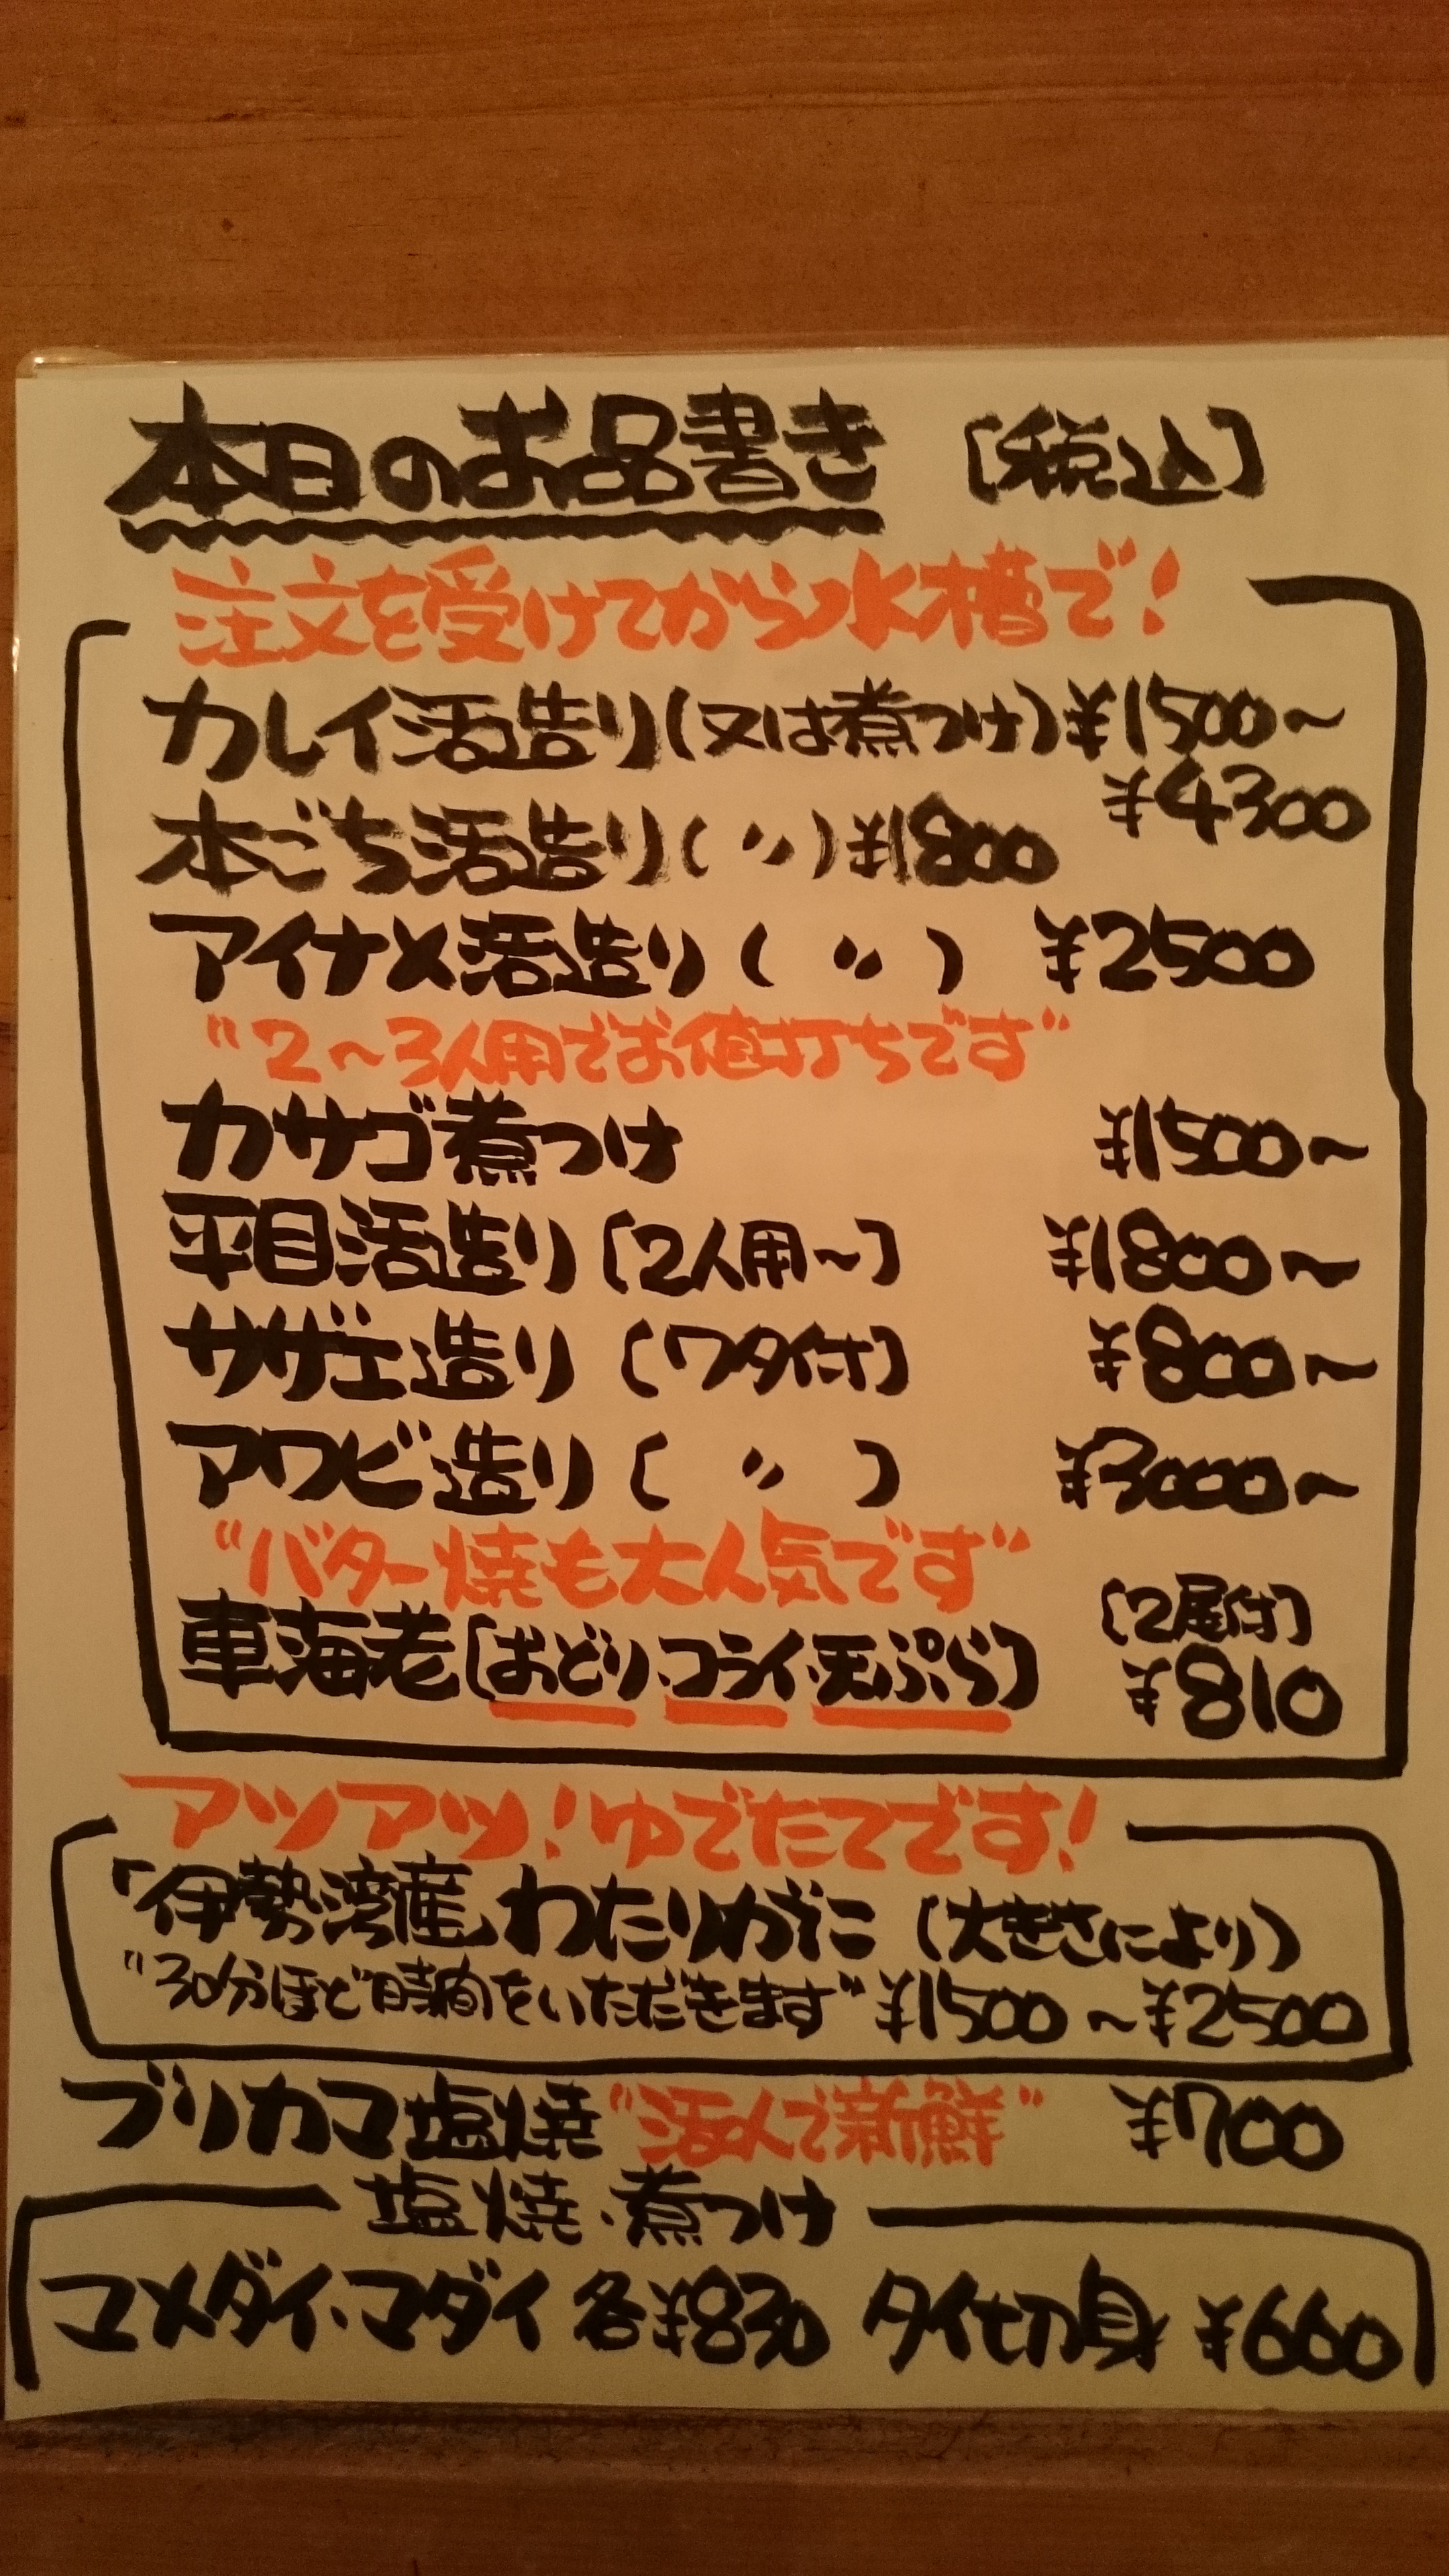 本日のお品書き [税込]
注文を受けてから水槽で!
カレイ活造り(又は煮つけ)¥1500~
¥4300
本ごち活造り(〃)¥1800
アイナメ活造り(〃) ¥2500
"2~3人用でお値打ちです"
カサゴ煮つけ ¥1500~
平目活造り[2人用~] ¥1800~
サザエ造り[ワタ付] ¥800~
アワビ造り[〃] ¥3000~
"バター焼も大人気です"
[2尾付]
車海老[おどり・フライ・天ぷら] ¥810
アツアツ!ゆでたてです!
「伊勢湾産」わたりがに(大きさにより)
"30分ほど時間をいただきます"¥1500~¥2500
ブリカマ塩焼"活〆で新鮮" ¥700
塩焼・煮つけ
マメダイ・マダイ各¥830 タイ切身 ¥660